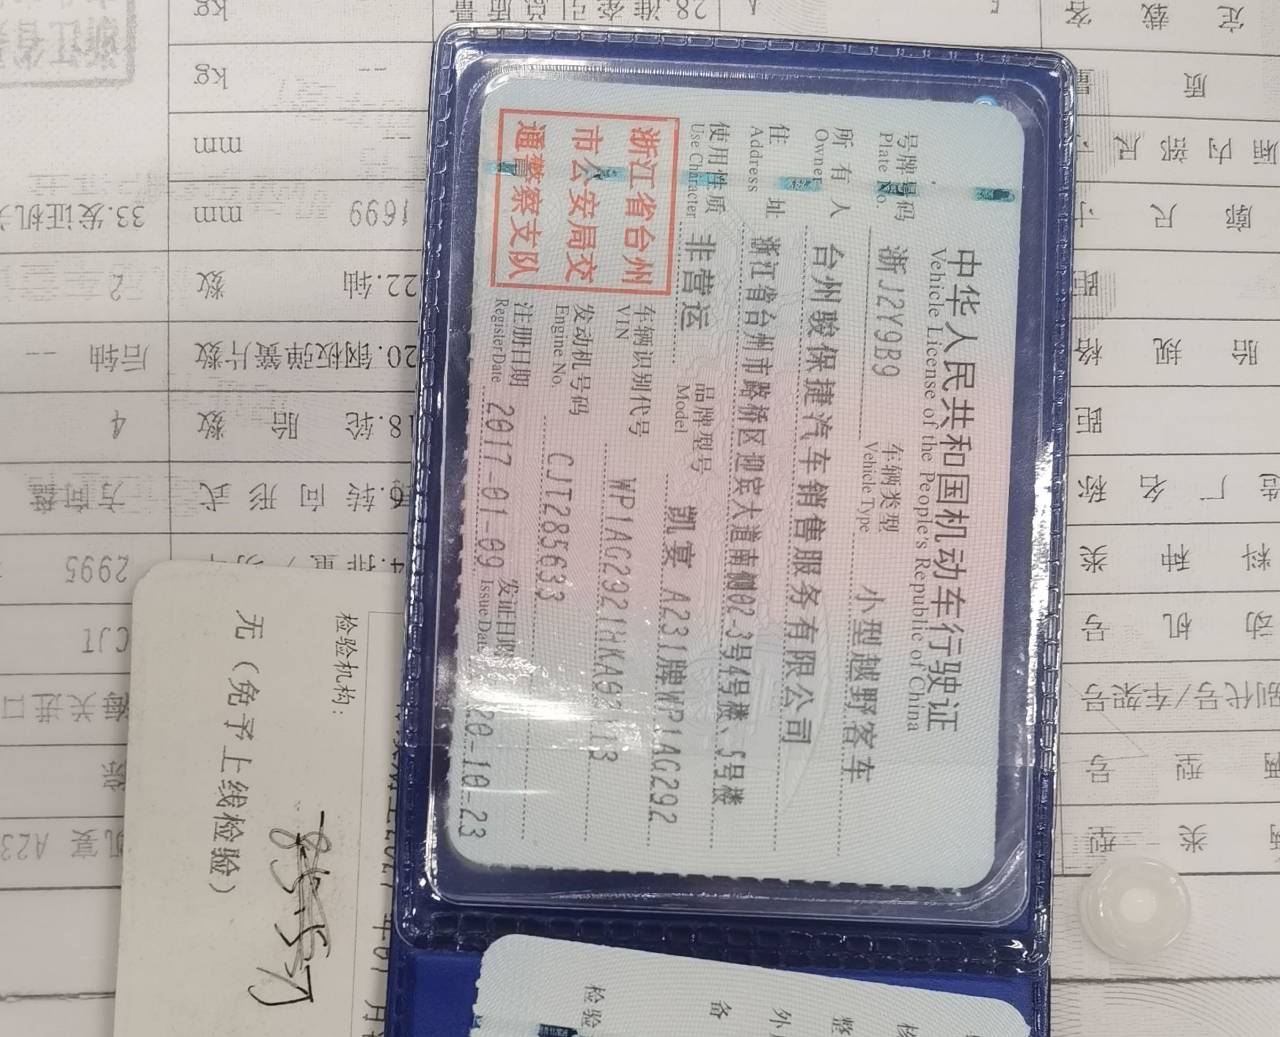 中华人民共和国机动车行驶证
Vehicle License of the People's Republic of China
号牌号码 浙J2Y9B9 车辆类型 小型越野客车
Plate No. Vehicle Type
所有人 台州骏保捷汽车销售服务有限公司
Owner
住址 浙江省台州市路桥区迎宾大道南侧02-3号4号楼、5号楼
Address
使用性质 非营运 品牌型号 凯宴 A231牌WP1AG292
Use Character Model
浙江省台州
市公安局交
通警察支队
车辆识别代号
VIN
发动机号码 CJT285633
Engine No.
注册日期 2017-01-09 发证日期 20-10-23
Register Date Issue Date
检验
备
外
整
核
检验机构:
无(免予上线检验)
kg
kg
mm
1699 mm
33.发证机关
22.轴数 2
20.钢板弹簧片数 后轴 --
18.轮胎数 4
转向形式 方向盘
2995
CJT
海关进口
凯宴 A23
定载客
质量
厢内部尺寸
廓尺寸
距
胎规格
距
造厂名称
料种类
动机号
别代号/车架号
辆型号
辆类型